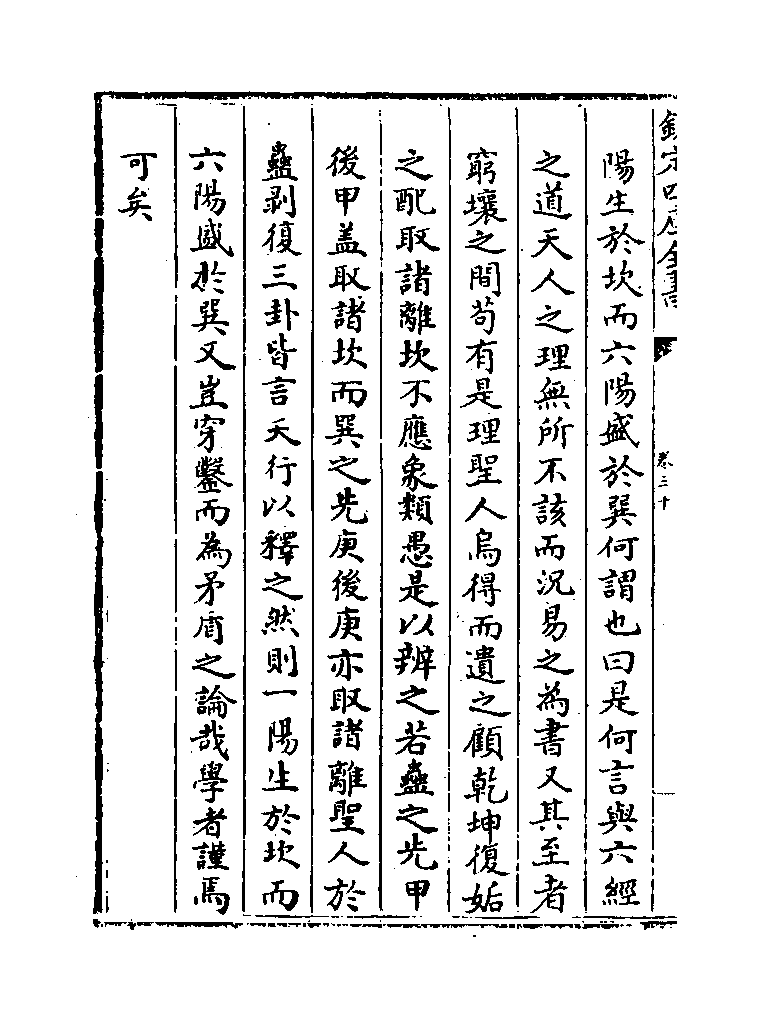 欽定四庫全書
卷三十
陽生於坎而六陽盛於巽何謂也曰是何言與六經
之道天人之理無所不該而況易之為書又其至者
窮壤之間苟有是理聖人烏得而遺之顧乾坤復姤
之配取諸離坎不應象類愚是以辨之若蠱之先甲
後甲盖取諸坎而巽之先庚後庚亦取諸離聖人於
蠱剥復三卦皆言天行以釋之然則一陽生於坎而
六陽盛於巽又豈穿鑿而為矛盾之論哉學者謹焉
可矣